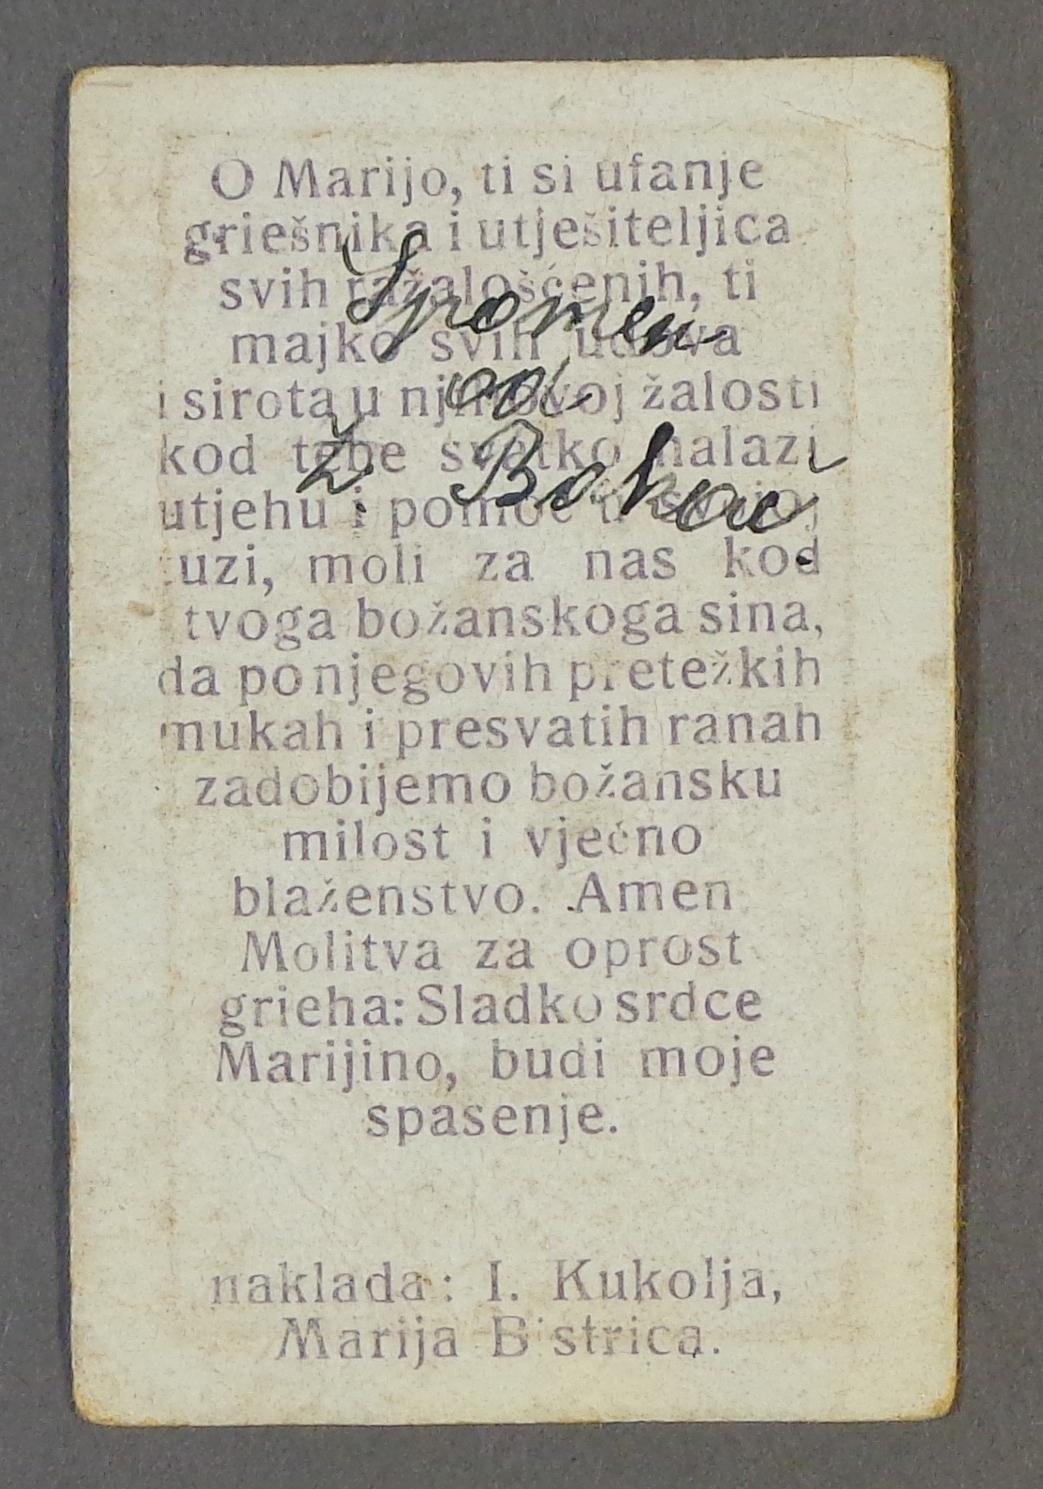 O Marijo, ti si ufanje
griešnika i utješiteljica
svih ražalošćenih, ti
majko svih udova
i sirota u njihovoj žalosti
kod tebe svatko nalazi
utjehu i pomoć u svojoj
tuzi, moli za nas kod
tvoga božanskoga sina,
da po njegovih pretežkih
mukah i presvatih ranah
zadobijemo božansku
milost i vječno
blaženstvo. Amen
Molitva za oprost
grieha: Sladko srdce
Marijino, budi moje
spasenje.
naklada: I. Kukolja,
Marija Bistrica.
Spomen
od
Ž